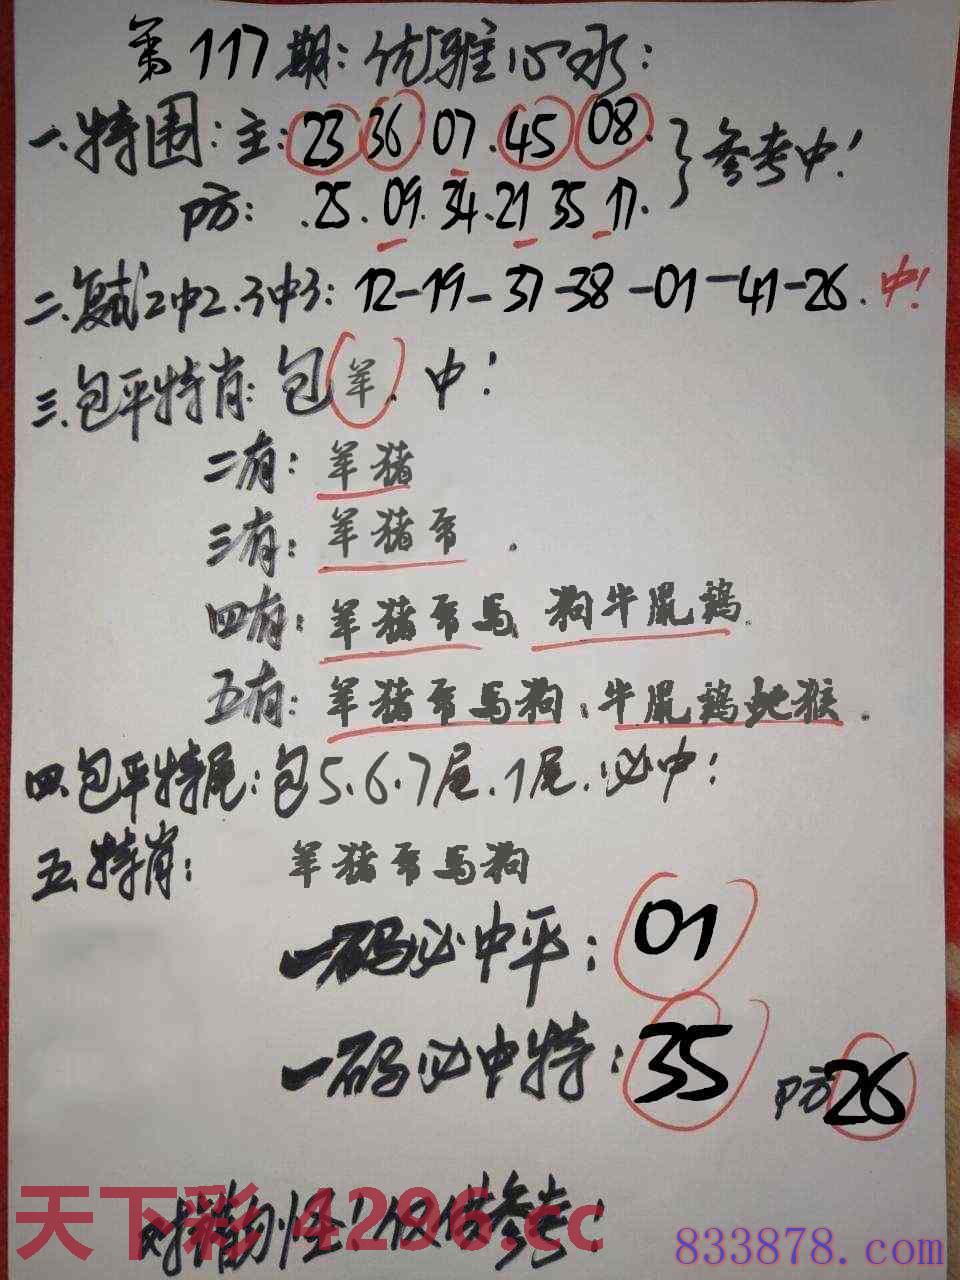 第117期:优雅心水:
一.特围:主:23 36.07.45 08.
防:.25.09.34.21 35.17.
}参考中!
二.复试2中2.3中3:12-19-37-38-01-41-26.中!
三.包平特肖:包羊.中!
二有:羊猪
三有:羊猪兔.
四有:羊猪兔马 狗牛鼠鸡.
五有:羊猪兔马狗.牛鼠鸡蛇猴.
四.包平特尾:包5.6.7尾.1尾.必中!
五.特肖: 羊猪兔马狗
一码必中平:01
一码必中特:35 防26
对错勿怪!仅供参考!
天下彩4296.cc
833878.com